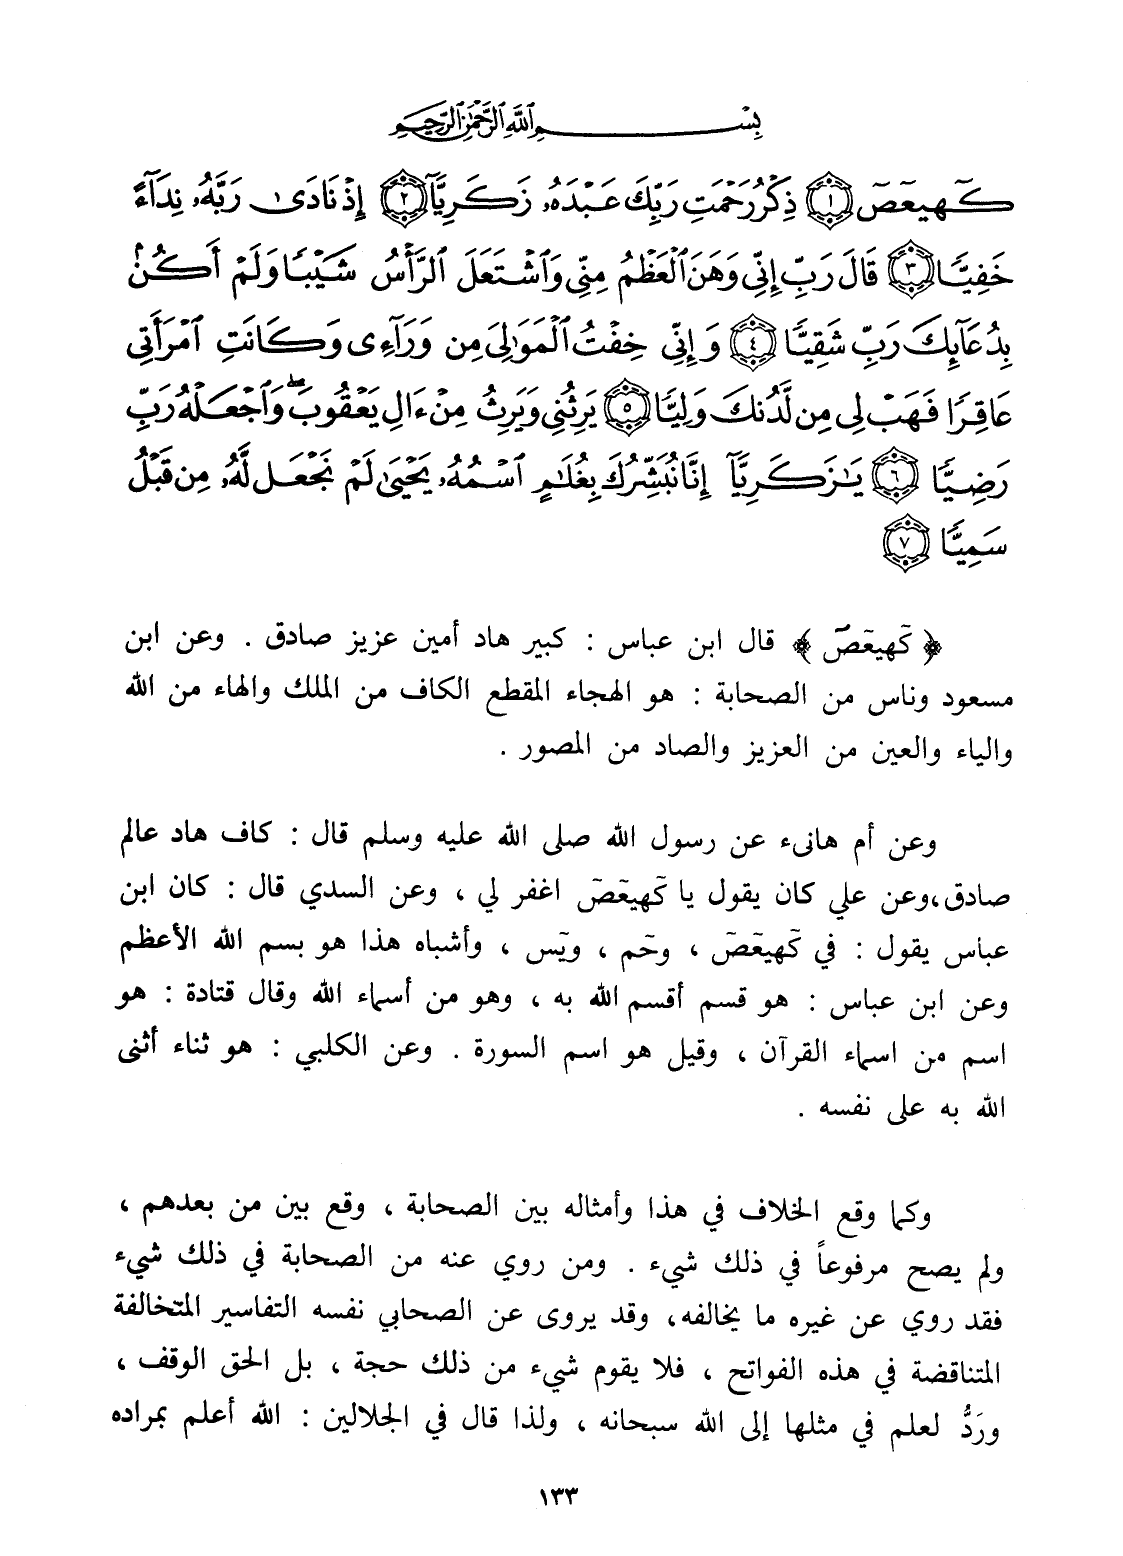 بِسْمِ ٱللَّهِ ٱلرَّحْمَٰنِ ٱلرَّحِيمِ
كٓهيعٓصٓ ﴿١﴾ ذِكْرُ رَحْمَتِ رَبِّكَ عَبْدَهُۥ زَكَرِيَّآ ﴿٢﴾ إِذْ نَادَىٰ رَبَّهُۥ نِدَآءً
خَفِيًّا ﴿٣﴾ قَالَ رَبِّ إِنِّى وَهَنَ ٱلْعَظْمُ مِنِّى وَٱشْتَعَلَ ٱلرَّأْسُ شَيْبًا وَلَمْ أَكُنۢ
بِدُعَآئِكَ رَبِّ شَقِيًّا ﴿٤﴾ وَإِنِّى خِفْتُ ٱلْمَوَٰلِىَ مِن وَرَآءِى وَكَانَتِ ٱمْرَأَتِى
عَاقِرًا فَهَبْ لِى مِن لَّدُنكَ وَلِيًّا ﴿٥﴾ يَرِثُنِى وَيَرِثُ مِنْ ءَالِ يَعْقُوبَ ۖ وَٱجْعَلْهُ رَبِّ
رَضِيًّا ﴿٦﴾ يَٰزَكَرِيَّآ إِنَّا نُبَشِّرُكَ بِغُلَٰمٍ ٱسْمُهُۥ يَحْيَىٰ لَمْ نَجْعَل لَّهُۥ مِن قَبْلُ
سَمِيًّا ﴿٧﴾
﴿ كٓهيعٓصٓ ﴾ قال ابن عباس : كبير هاد أمين عزيز صادق . وعن ابن
مسعود وناس من الصحابة : هو الهجاء المقطع الكاف من الملك والهاء من الله
والياء والعين من العزيز والصاد من المصور .
وعن أم هانىء عن رسول الله صلى الله عليه وسلم قال : كاف هاد عالم
صادق،وعن علي كان يقول يا كٓهيعٓصٓ اغفر لي ، وعن السدي قال : كان ابن
عباس يقول : في كٓهيعٓصٓ ، وحٓم ، ويٓس ، وأشباه هذا هو بسم الله الأعظم
وعن ابن عباس : هو قسم أقسم الله به ، وهو من أسماء الله وقال قتادة : هو
اسم من اسماء القرآن ، وقيل هو اسم السورة . وعن الكلبي : هو ثناء أثنى
الله به على نفسه .
وكما وقع الخلاف في هذا وأمثاله بين الصحابة ، وقع بين من بعدهم ،
ولم يصح مرفوعاً في ذلك شيء . ومن روي عنه من الصحابة في ذلك شيء
فقد روي عن غيره ما يخالفه، وقد يروى عن الصحابي نفسه التفاسير المتخالفة
المتناقضة في هذه الفواتح ، فلا يقوم شيء من ذلك حجة ، بل الحق الوقف ،
ورَدُّ لعلم في مثلها إلى الله سبحانه ، ولذا قال في الجلالين : الله أعلم بمراده
١٣٣